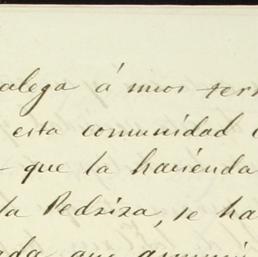 alega á unos ter
esta comunidad
que la hacienda
la Pedriza, se ha
que